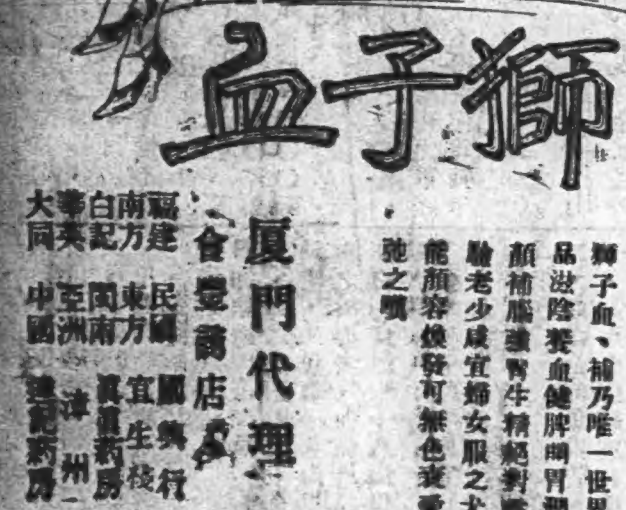 獅子血
獅子血、補乃唯一世界
品滋陰養血健脾開胃潤
顏補腦強腎生精絕對
驗老少咸宜婦女服之尤
能顏容煥發可無色衰
弛之嘆
廈門代理
食豐商店
福建 民國 國興行
南方 東方 宜生棧
白記 閩南 藥房
華英 亞洲 漳州
大同 中國 記葯房